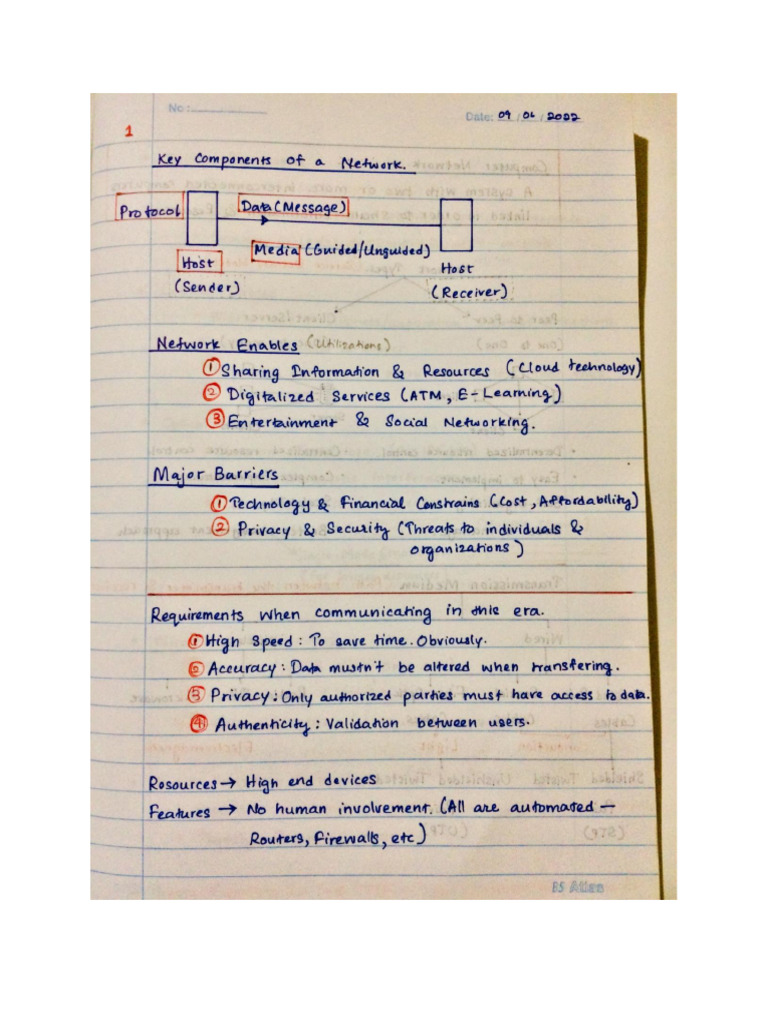 No:
Date: 09 / 06 / 2022
1
Key Components of a Network.
Protocol
Data (Message)
Media (Guided/Unguided)
Host
(Sender)
Host
(Receiver)
Network Enables (Utilizations)
① Sharing Information & Resources (Cloud technology)
② Digitalized Services (ATM, E-Learning)
③ Entertainment & Social Networking.
Major Barriers
① Technology & Financial Constrains (Cost, Affordability)
② Privacy & Security (Threats to individuals &
organizations)
Requirements when communicating in this era.
① High Speed: To save time. Obviously.
② Accuracy: Data mustn't be altered when transfering.
③ Privacy: Only authorized parties must have access to data.
④ Authenticity: Validation between users.
Resources → High end devices
Features → No human involvement. (All are automated —
Routers, Firewalls, etc)
B5 Atlas